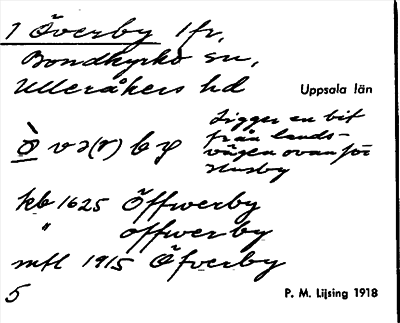 1 Överby 1 fr,
Bondkyrko sn,
Ulleråkers hd Uppsala län
Ligger en bit
från lands-
vägen ovan för
Husby
ò̱ və(r) by
kb 1625 Öffwerby
" offwerby
mtl 1915 Öfverby
5 P. M. Lijsing 1918